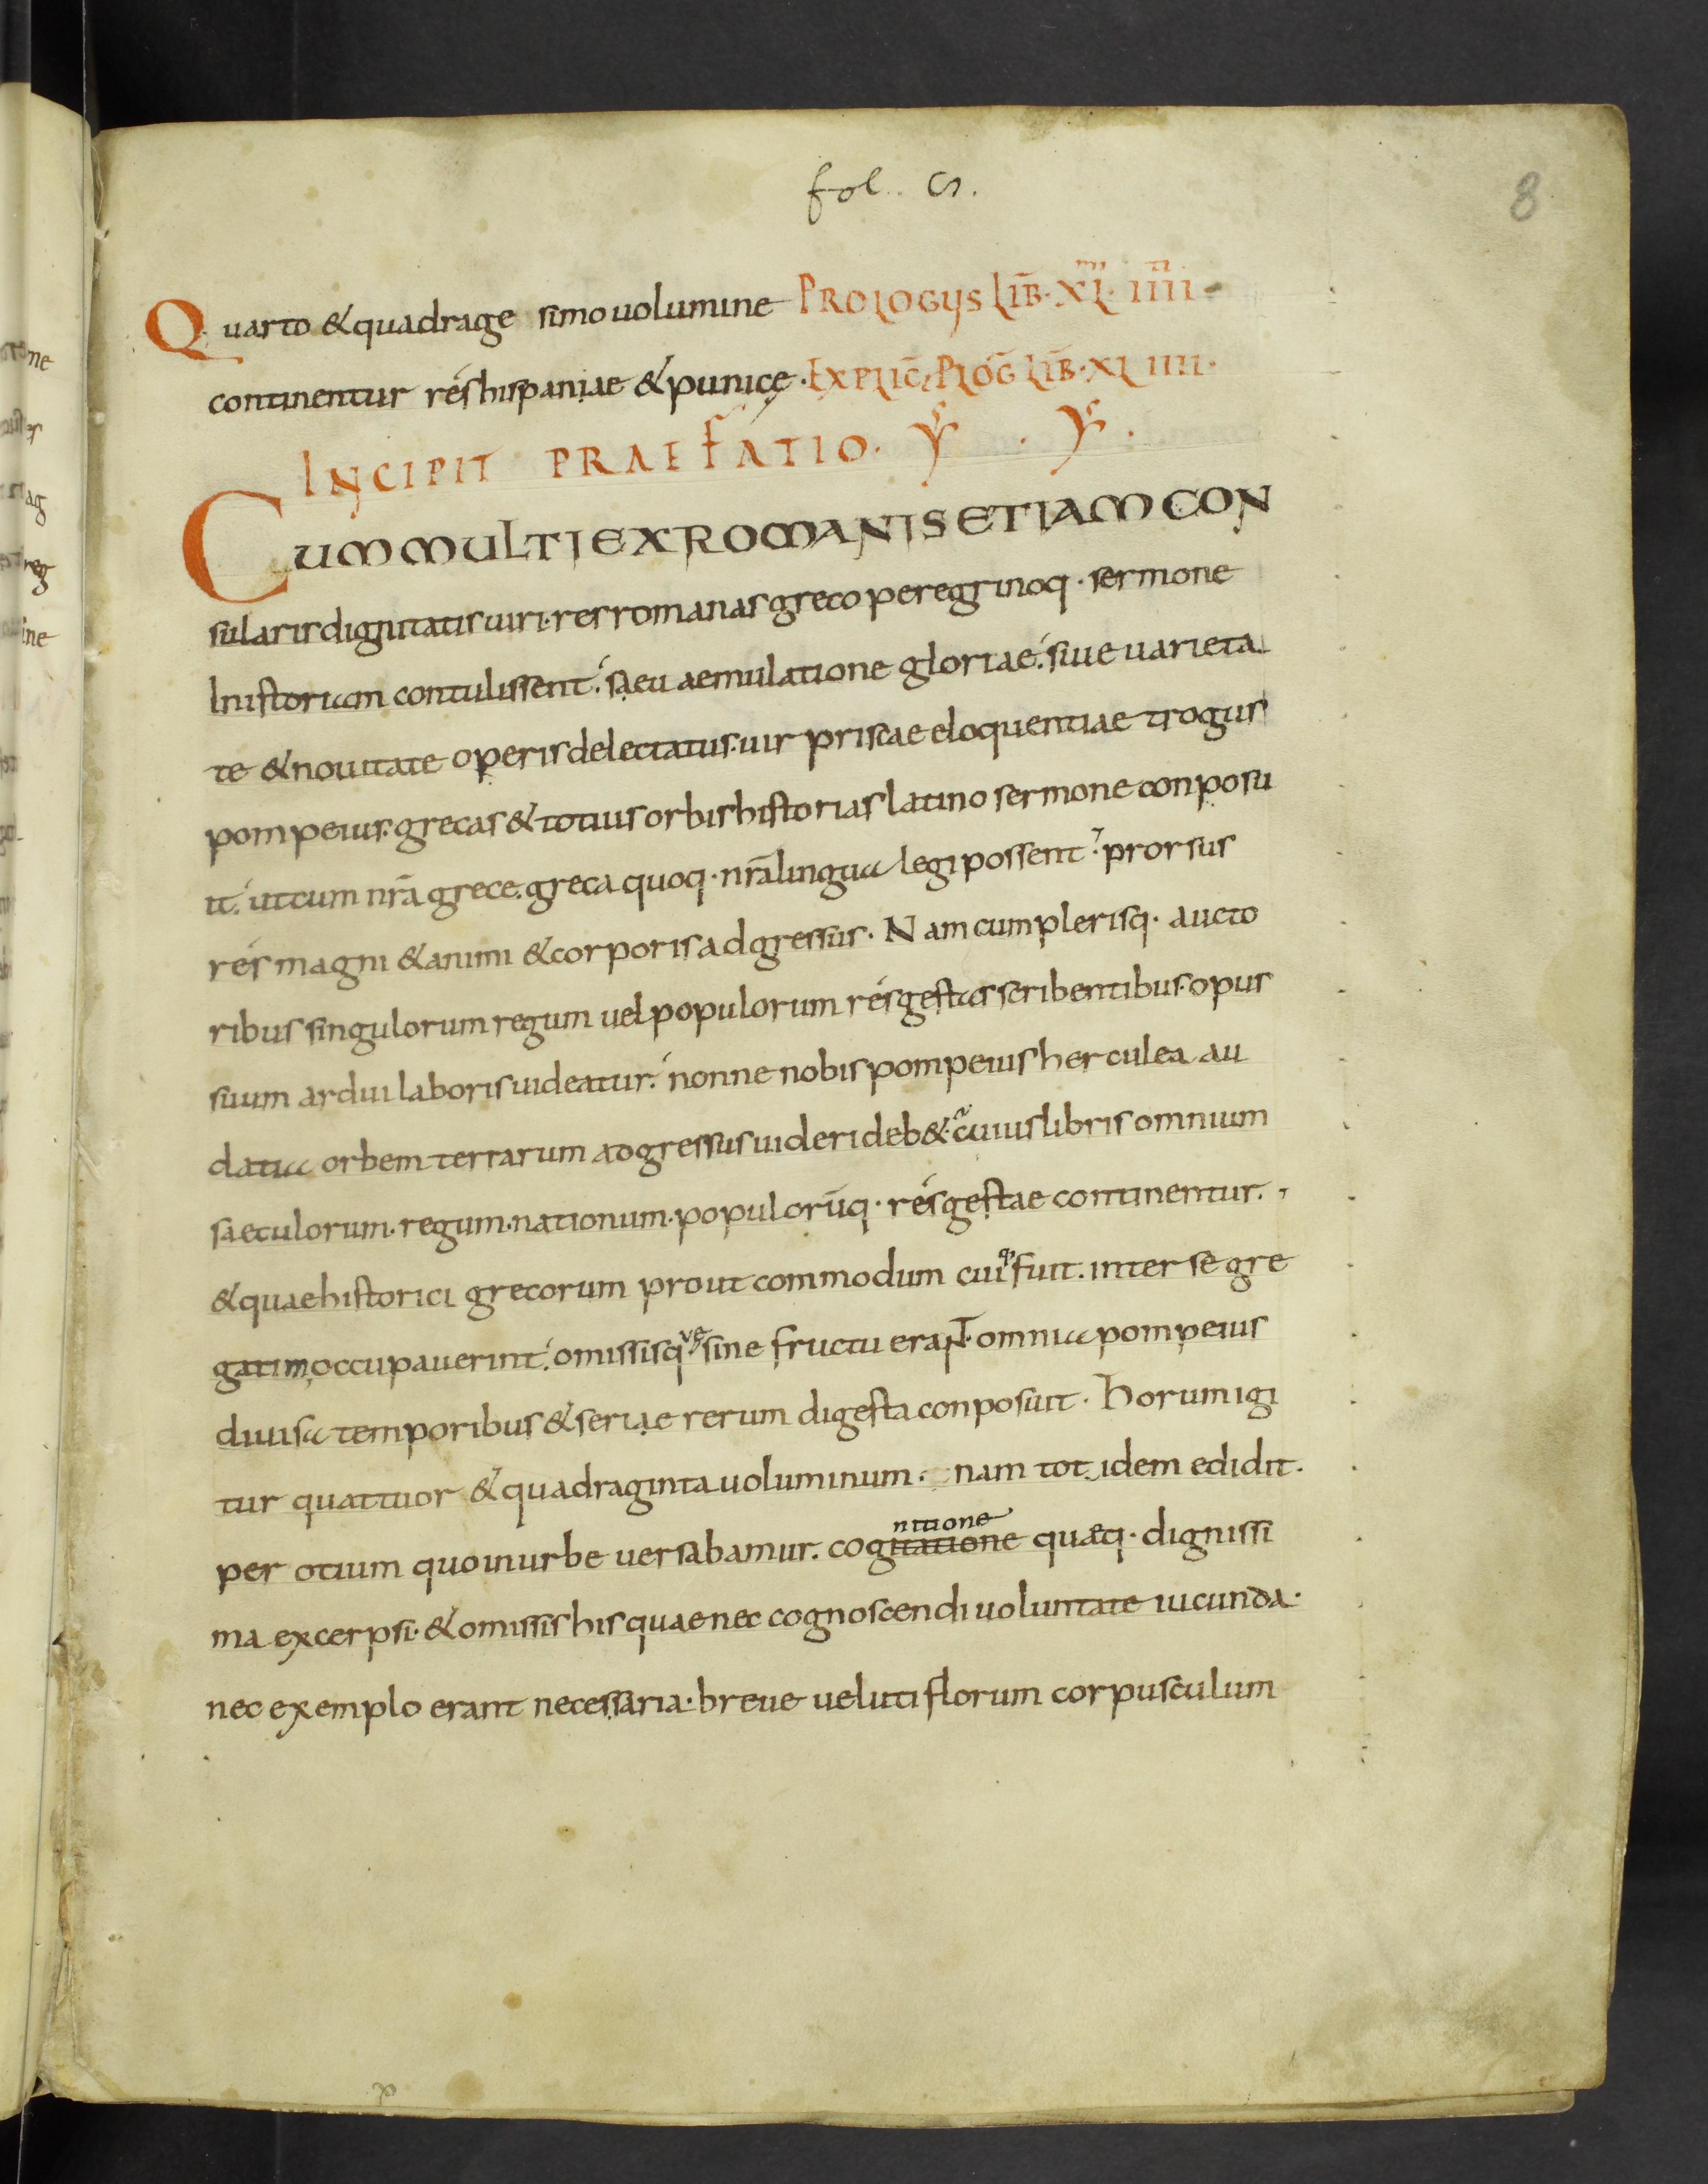 fol. 
8
Quarto & quadrage simo uolumine PROLOGUS LIB̅·XL·IIII
continentur rés hispaniae & punicę· EXPLIC̅ PLOG̅ LIB̅·XL IIII·
INCIPIT PRAEFATIO·
CUM MULTI EX ROMANIS ETIAM CON
sularis dignitatis uiri· res romanas greco peregrinoq· sermone
Inistoriam contulissent· saeu aemulatione gloriae· siue uarieta
te & nouitate operis delectatus· uir priscae eloquentiae trogus
pompeius· grecas & totius orbis historias latino sermone conposu
it· ut cum nr̅a grece· greca quoq· nr̅a lingua legi possent· prorsus
rés magni & animi & corporis adgressus· Nam cum plerisq· aucto
ribus singulorum regum uel populorum rés gestas scribentibus· opus
suum ardui laboris uideatur· nonne nobis pompeius herculea au
datia orbem terrarum adgressus uideri deb&· cuius libris omnium
saeculorum· regum· nationum· populoru̅q· rés gestae continentur·
& quae historici grecorum prout commodum cuiq· fuit· inter se gre
gatim occupauerint· omissisq·ve sine fructu erant· omnia pompeius
diuisa temporibus & seriae rerum digesta conposuit· Horum igi
tur quattuor & quadraginta uoluminum· nam tot idem edidit·
nitione
per otium quo in urbe uersabamur· cogitatione quaeq· dignissi
ma excerpsi· & omissis his quae nec cognoscendi uoluntate iucunda·
nec exemplo erant necessaria· breue ueluti florum corpusculum